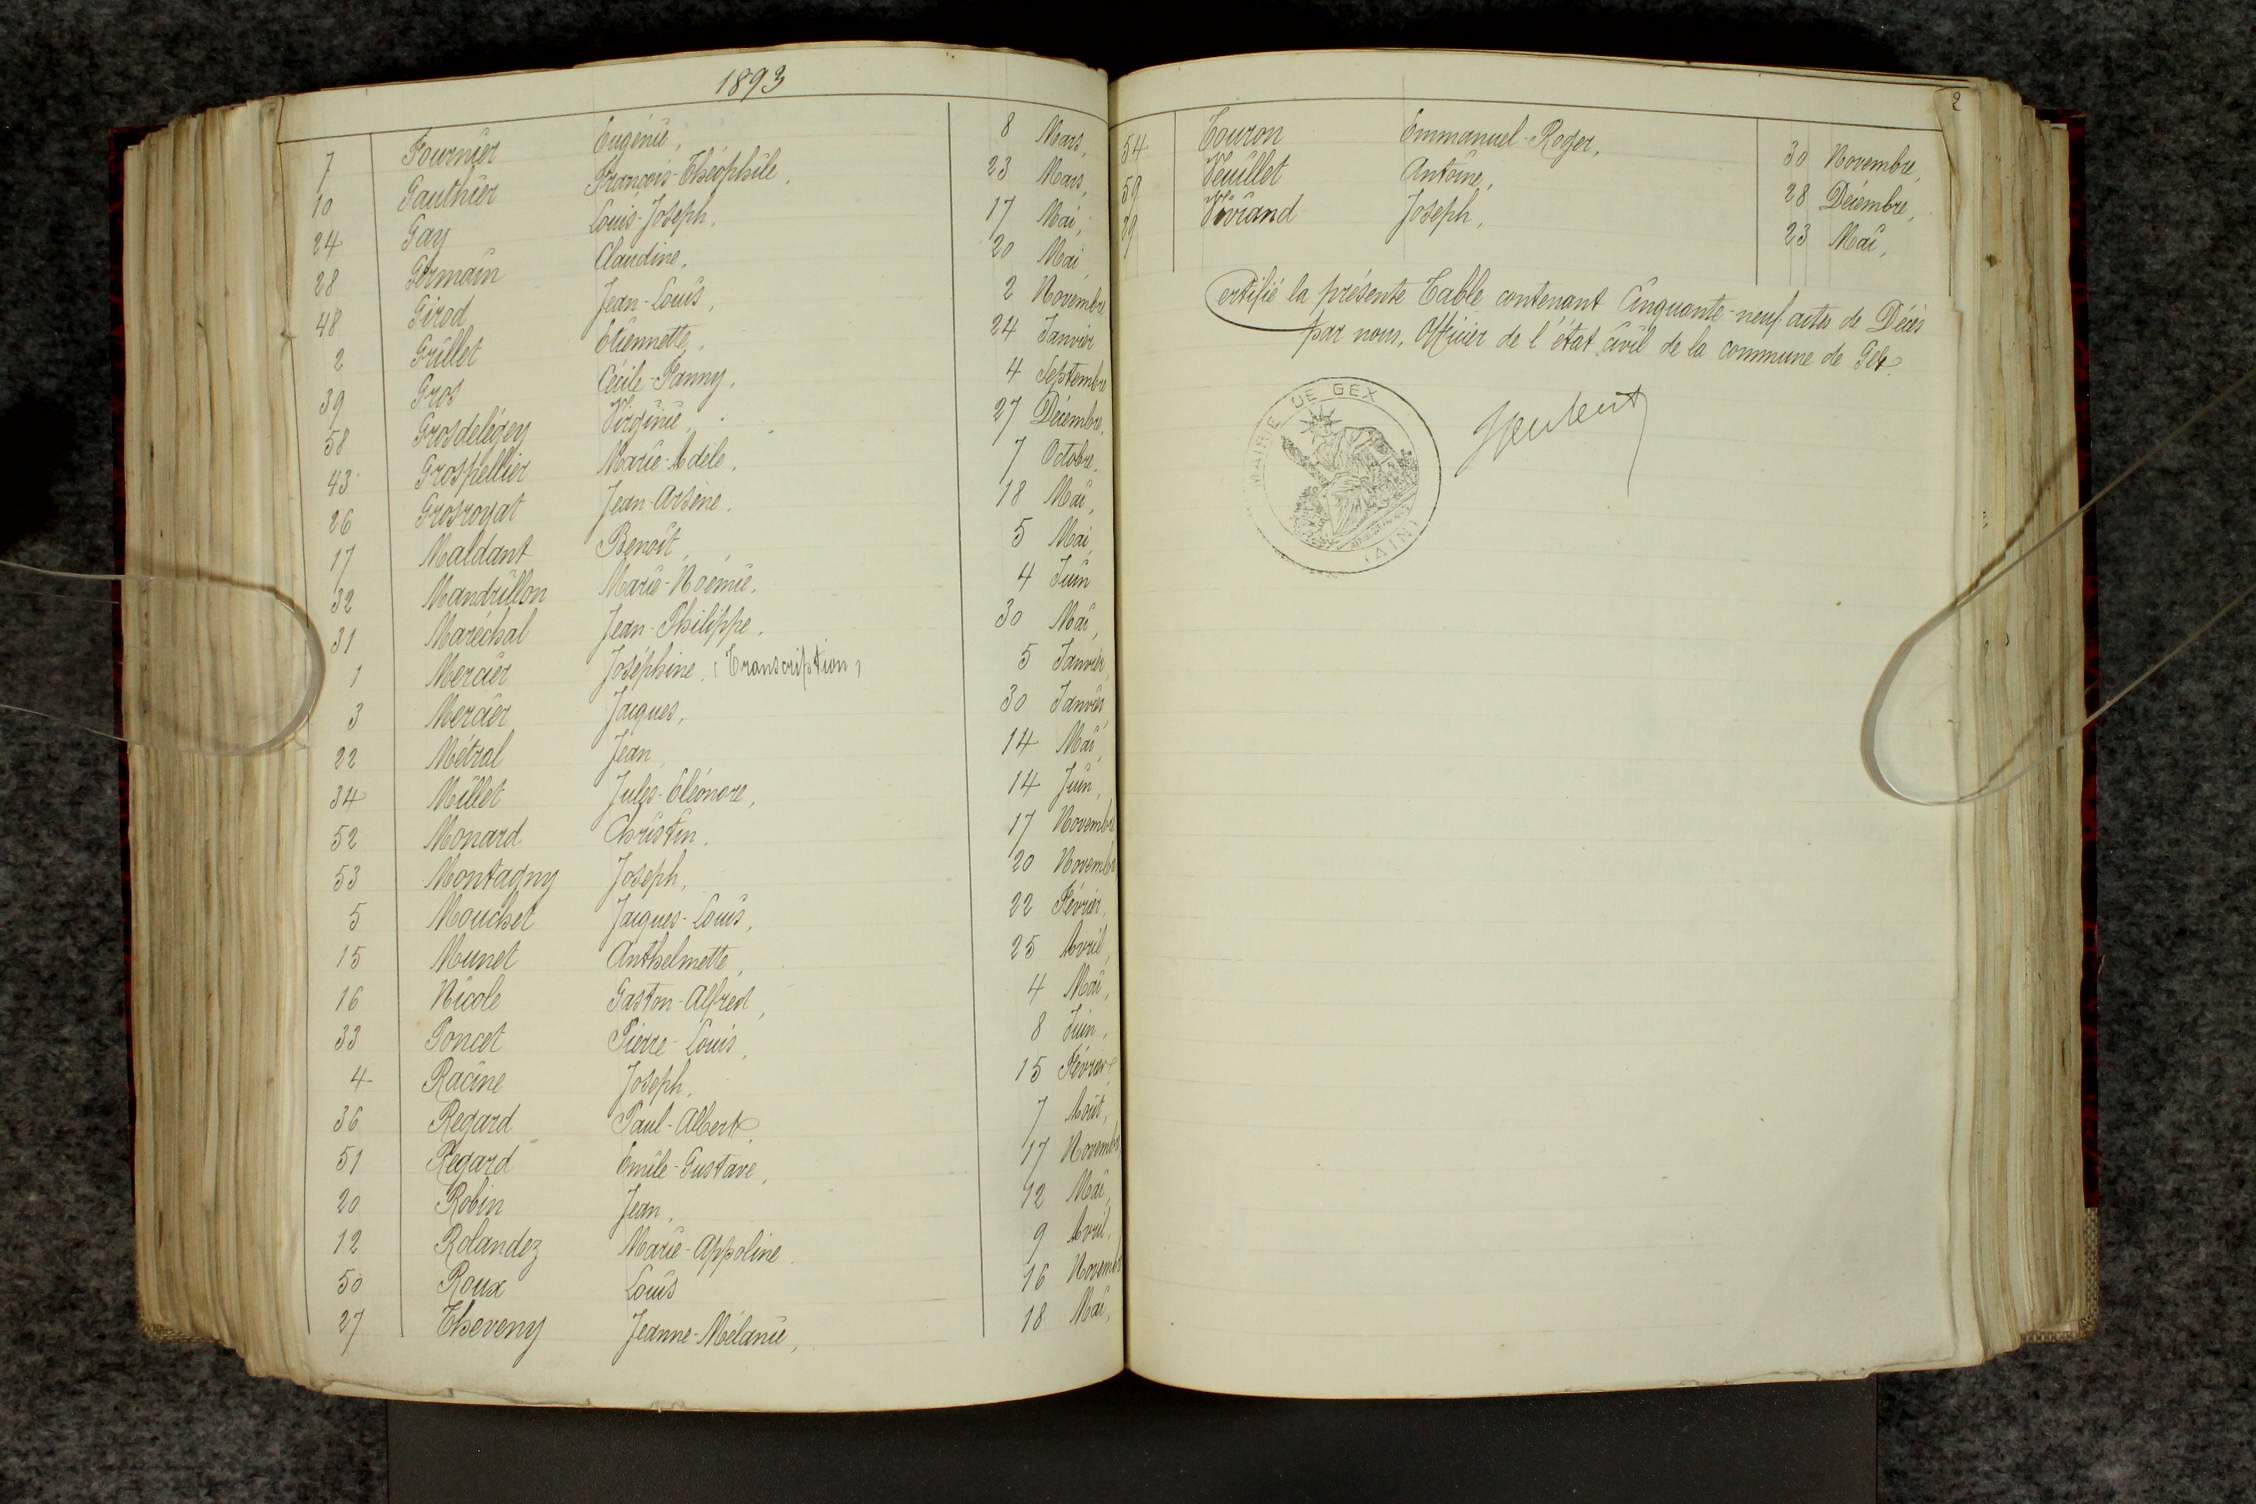 1893
7 Fournier Eugénie, 8 Mars,
10 Gauthier François-Théophile, 23 Mars,
24 Gay Louis-Joseph, 17 Mai,
28 Germain Claudine, 20 Mai
48 Girod Jean-Louis, 2 Novembre
2 Grillet Etiennette, 24 Janvier
39 Gros Cécile-Fanny, 4 Septembre
58 Grosdelégey Virginie, 27 Décembre,
43 Grospellier Marie-Adèle, 7 Octobre,
26 Grosroyat Jean-Arsène. 18 Mai,
17 Maldant Benoît, 5 Mai,
32 Mandrillon Marie-Noémie. 4 Juin
31 Maréchal Jean-Philippe. 30 Mai,
1 Mercier Joséphine. (Transcription) 5 Janvier,
3 Mercier Jacques, 30 Janvier,
22 Métral Jean, 14 Mai,
34 Millet Jules-Eléonore, 14 Juin,
52 Monard Christin. 17 Novembre
53 Montagny Joseph, 20 Novembre
5 Mouchet Jacques-Louis, 22 Février,
15 Munet Anthelmette, 25 Avril,
16 Nicole Gaston-Alfred, 4 Mai,
33 Poncet Pierre-Louis, 8 Juin,
4 Racine Joseph, 15 Février
36 Regard Paul-Albert, 7 Août,
51 Regard Emile-Gustave, 17 Novembre
20 Robin Jean, 12 Mai,
12 Rolandez Marie-Appoline 9 Avril,
50 Roux Louis 16 Novembre
27 Theveny Jeanne-Mélanie, 18 Mai,
2
54 Touron Emmanuel-Roger, 30 Novembre,
59 Veuillet Antoine, 28 Décembre,
29 Viviand Joseph, 23 Mai,
Certifié la présente Table contenant Cinquante-neuf actes de Décès
par nous, Officier de l'état civil de la commune de Gex.
MAIRIE DE GEX
(AIN)